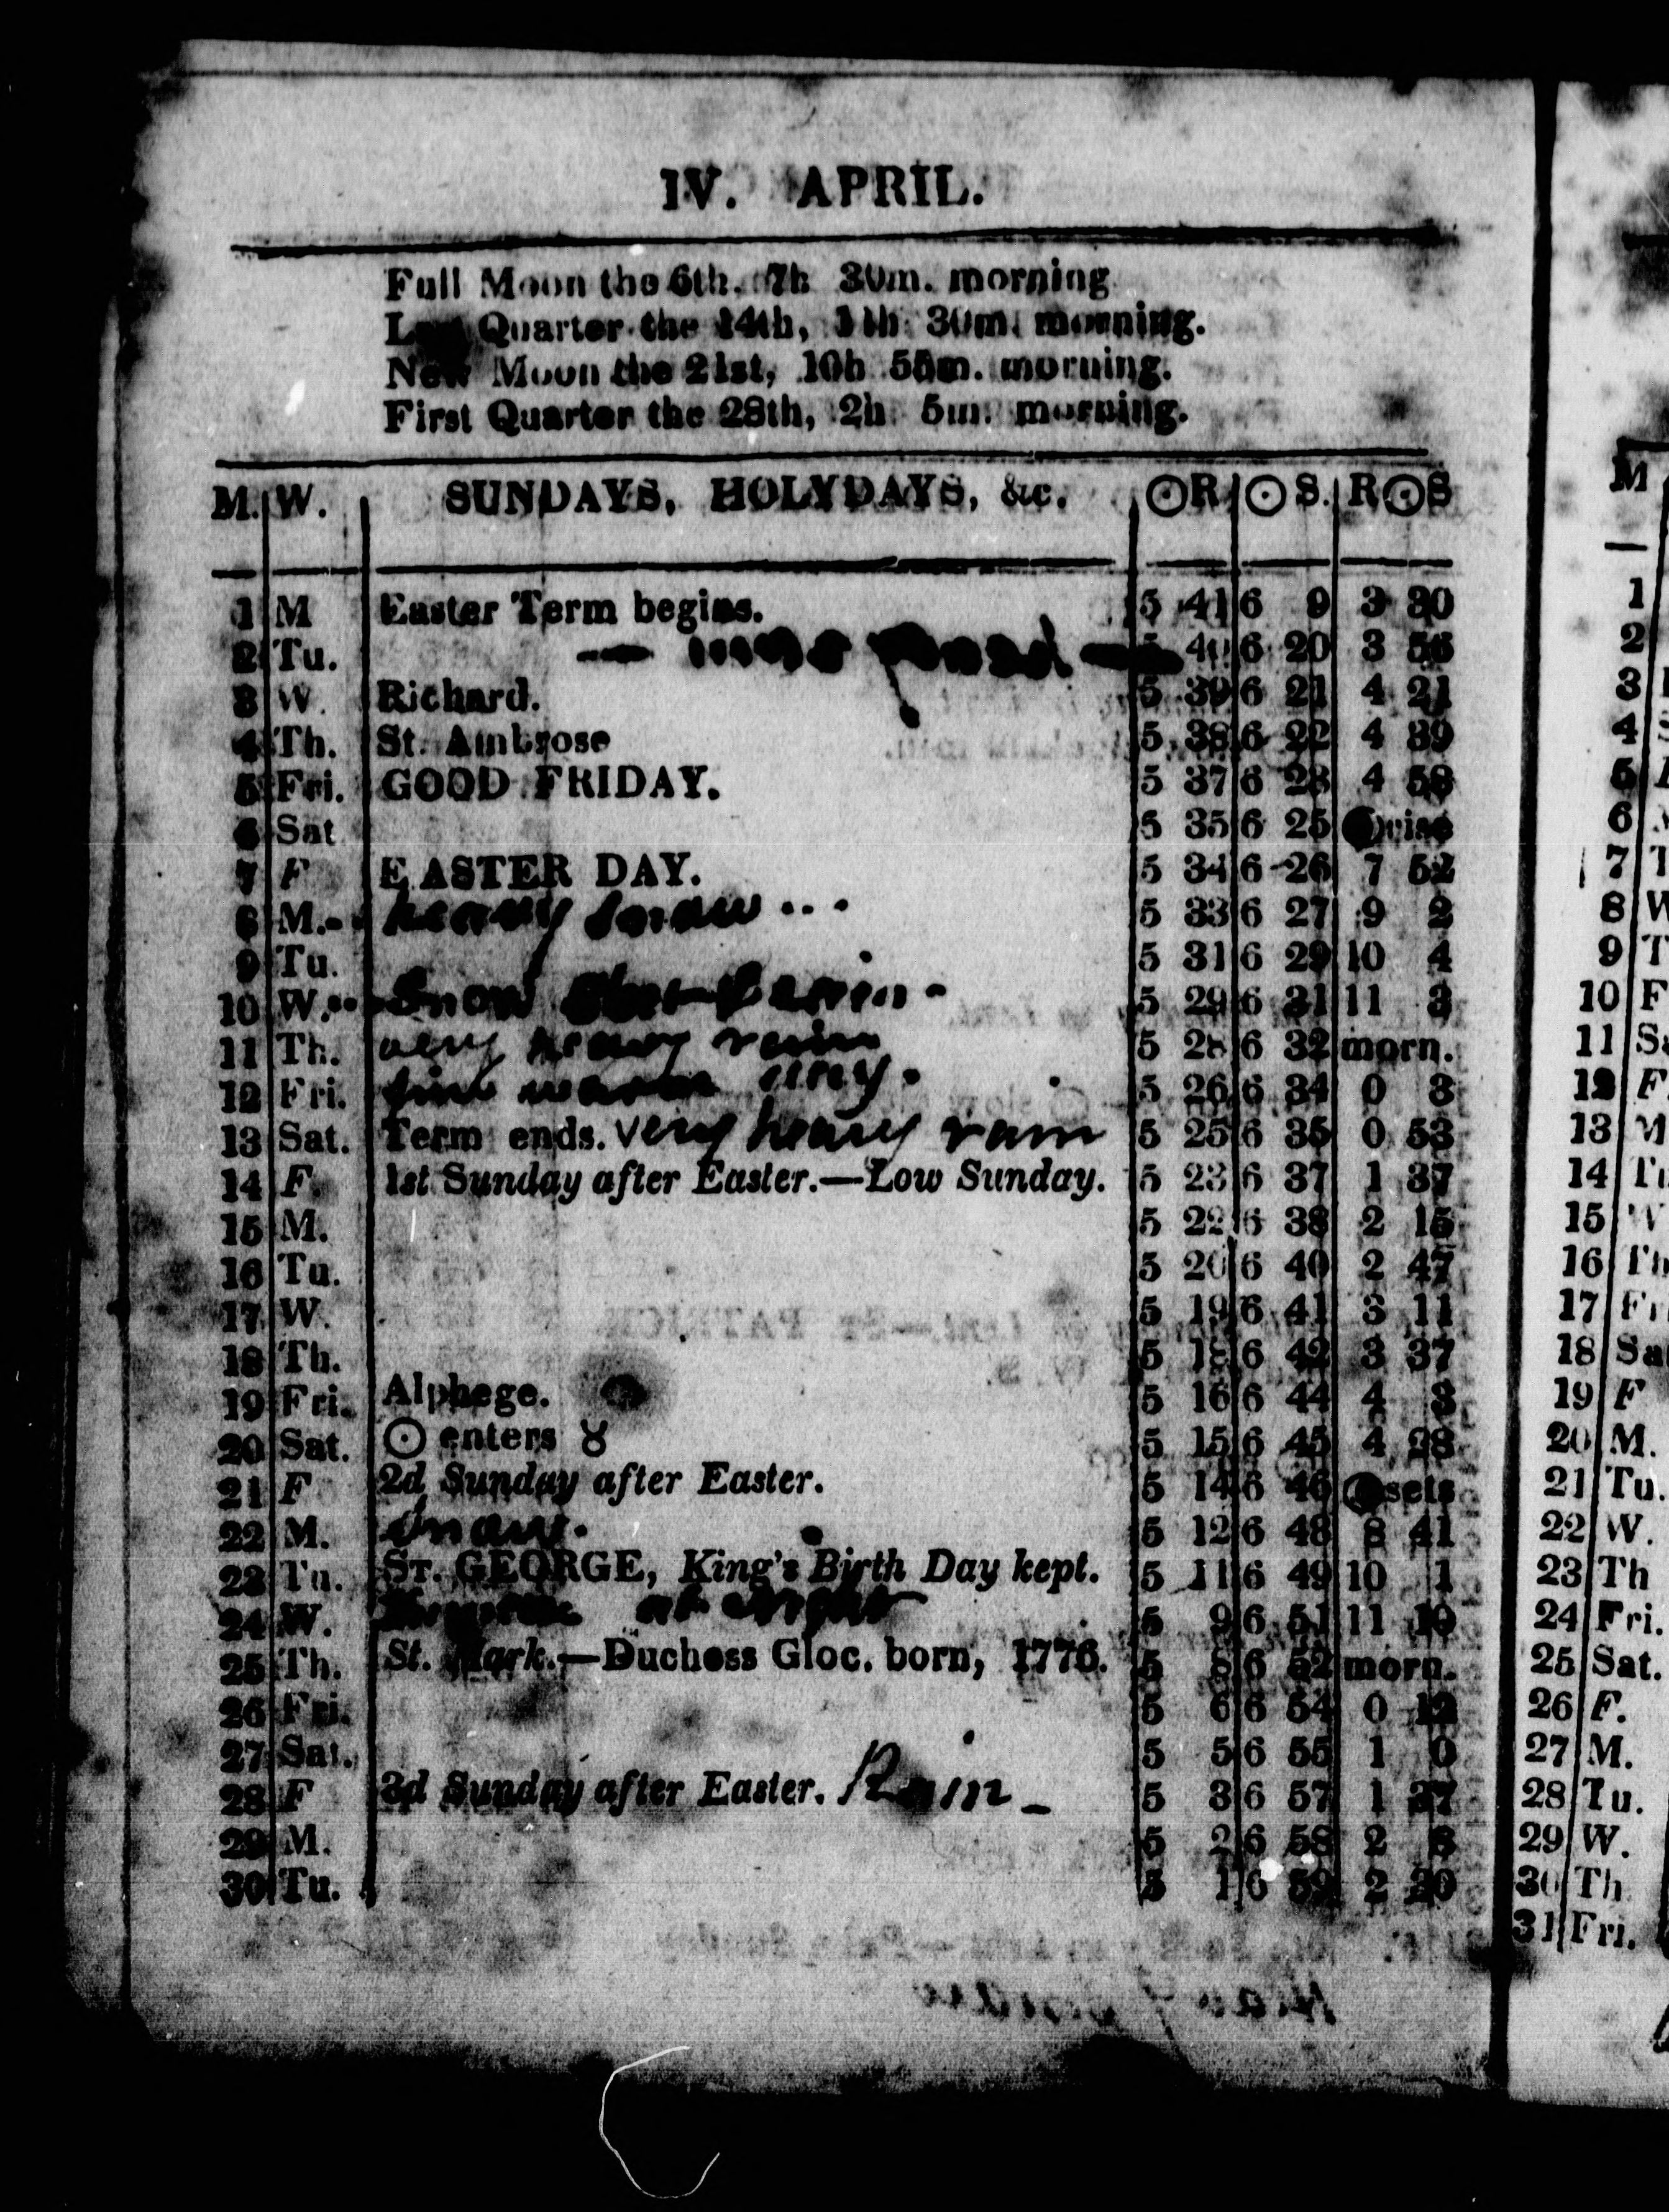 IV. APRIL.
Full Moon the 6th. 7h 30m. morning
Quarter the 14th, 11h 30m. morning.
New Moon the 21st, 10h 55m. morning.
First Quarter the 28th, 2h 5m. morning.
M. W. SUNDAYS, HOLYDAYS, &c. ☉R ☉S. R☉S
1 M Easter Term begins. 5 41 6 9 3 30
2 Tu. 40 6 20 3 56
3 W. Richard. 5 39 6 21 4 21
4 Th. St. Ambrose 5 38 6 22 4 39
5 Fri. GOOD FRIDAY. 5 37 6 23 4 58
6 Sat 5 35 6 25 rise
7 F EASTER DAY. 5 34 6 26 7 52
8 M. heavy snow ... 5 33 6 27 9 2
9 Tu. 5 31 6 29 10 4
10 W. Snow 5 29 6 31 11 3
11 Th. very heavy rain 5 28 6 32 morn.
12 Fri. fine warm day. 5 26 6 34 0 3
13 Sat. Term ends. very heavy rain 5 25 6 35 0 53
14 F. 1st Sunday after Easter.—Low Sunday. 5 23 6 37 1 37
15 M. 5 22 6 38 2 15
16 Tu. 5 20 6 40 2 47
17 W. 5 19 6 41 3 11
18 Th. 5 18 6 42 3 37
19 Fri. Alphege. 5 16 6 44 4 3
20 Sat. ☉ enters ♉ 5 15 6 45 4 28
21 F 2d Sunday after Easter. 5 14 6 46 sets
22 M. Snow. 5 12 6 48 8 41
23 Tu. ST. GEORGE, King's Birth Day kept. 5 11 6 49 10 1
24 W. at night 5 9 6 51 11 10
25 Th. St. Mark.—Duchess Gloc. born, 1776. 5 8 6 52 morn.
26 Fri. 5 6 6 54 0 12
27 Sat. 5 5 6 55 1 0
28 F 3d Sunday after Easter. Rain - 5 3 6 57 1 37
29 M. 5 2 6 58 2 8
30 Tu. 5 1 6 59 2 30
M
1
2
3
4
5
6
7 T
8 W
9 T
10 F
11 Sa
12 F.
13 M
14 Tu
15 W
16 Th
17 Fri
18 Sa
19 F
20 M.
21 Tu.
22 W.
23 Th
24 Fri.
25 Sat.
26 F.
27 M.
28 Tu.
29 W.
30 Th
31 Fri.